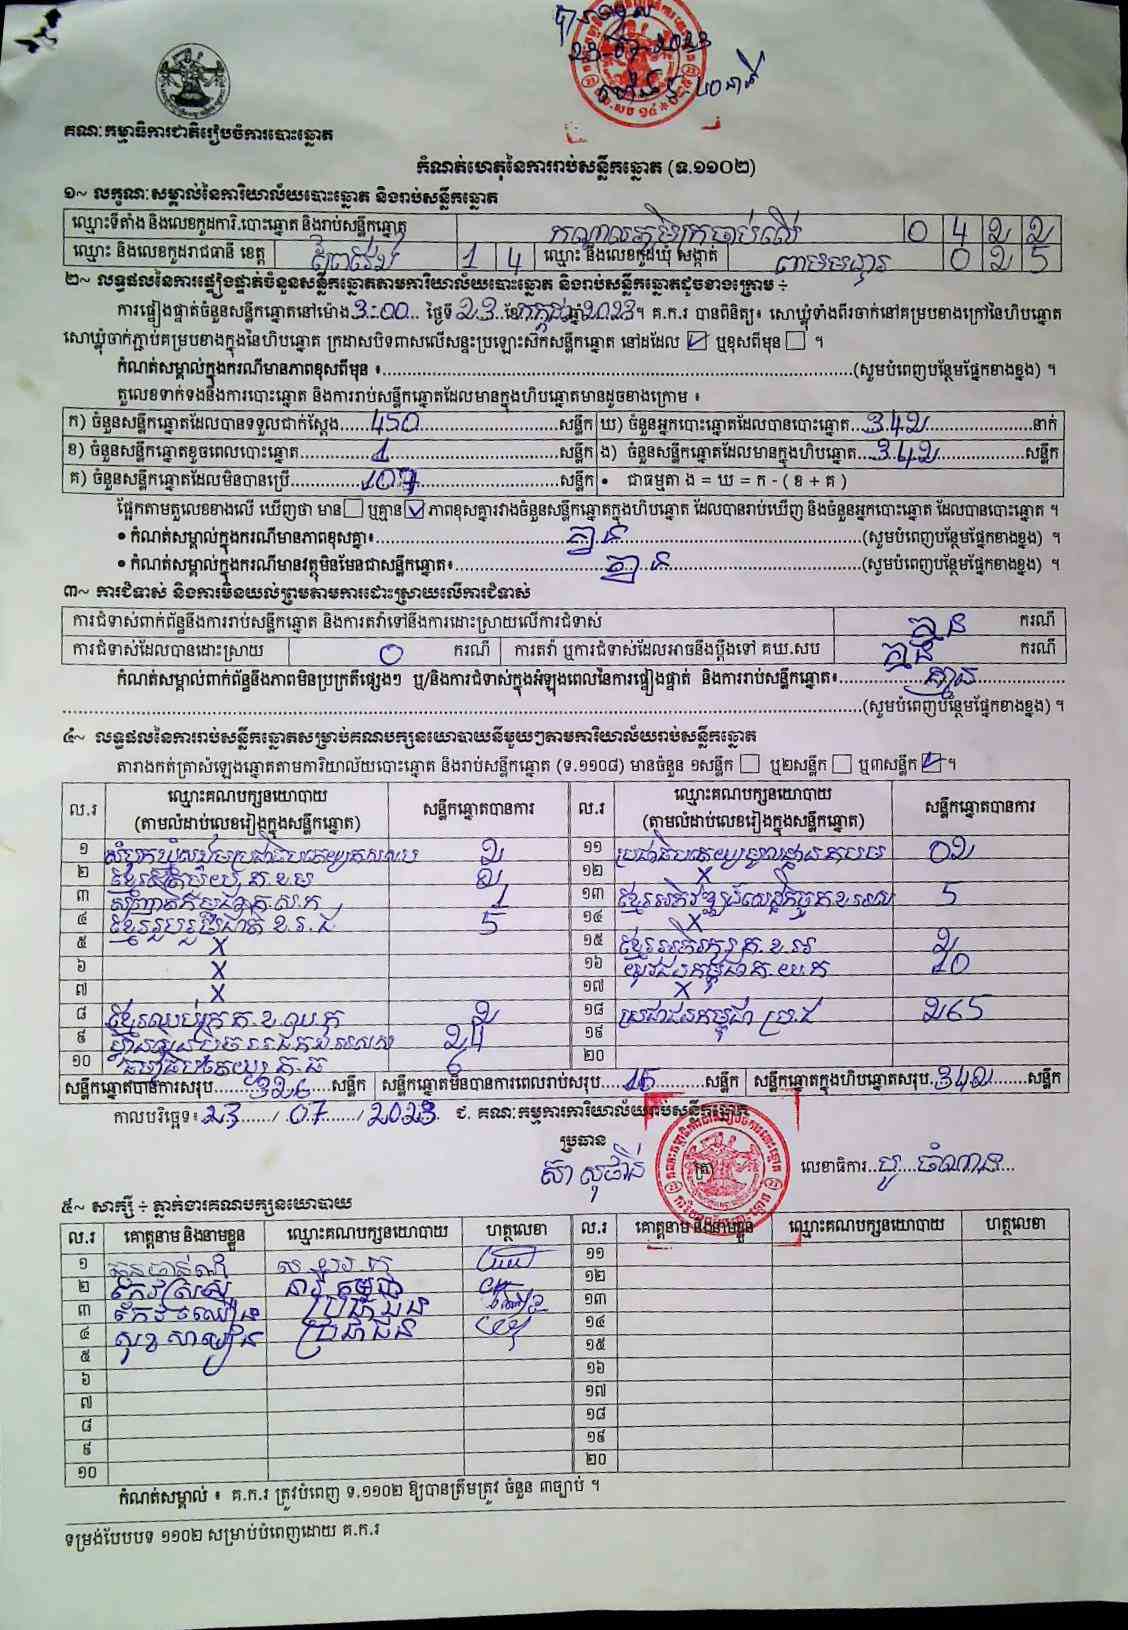 ២៣-៧-២០២៣
គណៈកម្មាធិការជាតិរៀបចំការបោះឆ្នោត
កំណត់ហេតុនៃការរាប់សន្លឹកឆ្នោត (ទ.១១០២)
១~ លក្ខណៈសម្គាល់នៃការិយាល័យបោះឆ្នោត និងរាប់សន្លឹកឆ្នោត
ឈ្មោះទីតាំង និងលេខកូដការិ.បោះឆ្នោត និងរាប់សន្លឹកឆ្នោត 0 4 2 2
ឈ្មោះ និងលេខកូដរាជធានី ខេត្ត ព្រៃវែង 1 4 ឈ្មោះ និងលេខកូដឃុំ សង្កាត់ 0 2 5
២~ លទ្ធផលនៃការផ្ទៀងផ្ទាត់ចំនួនសន្លឹកឆ្នោតតាមការិយាល័យបោះឆ្នោត និងរាប់សន្លឹកឆ្នោតដូចខាងក្រោម ÷
ការផ្ទៀងផ្ទាត់ចំនួនសន្លឹកឆ្នោតនៅម៉ោង 3:00 ថ្ងៃទី 23 ខែ កក្កដា ឆ្នាំ 2023។ គ.ក.រ បានពិនិត្យ៖ សោឃ្លុំទាំងពីរចាក់នៅគម្របខាងក្រៅនៃហិបឆ្នោត
សោឃ្លុំចាក់ភ្ជាប់គម្របខាងក្នុងនៃហិបឆ្នោត ក្រដាសបិទពាសលើសន្ទះប្រឡោះសឹកសន្លឹកឆ្នោត នៅដដែល ☑ ឬខុសពីមុន ☐ ។
កំណត់សម្គាល់ក្នុងករណីមានភាពខុសពីមុន ៖..........(សូមបំពេញបន្ថែមផ្នែកខាងខ្នង) ។
តួលេខទាក់ទងនឹងការបោះឆ្នោត និងការរាប់សន្លឹកឆ្នោតដែលមានក្នុងហិបឆ្នោតមានដូចខាងក្រោម ៖
ក) ចំនួនសន្លឹកឆ្នោតដែលបានទទួលជាក់ស្តែង 450 សន្លឹក ឃ) ចំនួនអ្នកបោះឆ្នោតដែលបានបោះឆ្នោត 342 នាក់
ខ) ចំនួនសន្លឹកឆ្នោតខូចពេលបោះឆ្នោត 1 សន្លឹក ង) ចំនួនសន្លឹកឆ្នោតដែលមានក្នុងហិបឆ្នោត 342 សន្លឹក
គ) ចំនួនសន្លឹកឆ្នោតដែលមិនបានប្រើ 107 សន្លឹក • ជាធម្មតា ង = ឃ = ក - ( ខ + គ )
ផ្អែកតាមតួលេខខាងលើ ឃើញថា មាន ☐ ឬគ្មាន ☑ ភាពខុសគ្នារវាងចំនួនសន្លឹកឆ្នោតក្នុងហិបឆ្នោត ដែលបានរាប់ឃើញ និងចំនួនអ្នកបោះឆ្នោត ដែលបានបោះឆ្នោត ។
• កំណត់សម្គាល់ក្នុងករណីមានភាពខុសគ្នា៖ គ្មាន (សូមបំពេញបន្ថែមផ្នែកខាងខ្នង) ។
• កំណត់សម្គាល់ក្នុងករណីមានវត្ថុមិនមែនជាសន្លឹកឆ្នោត៖ គ្មាន (សូមបំពេញបន្ថែមផ្នែកខាងខ្នង) ។
៣~ ការជំទាស់ និងការមិនយល់ព្រមតាមការដោះស្រាយលើការជំទាស់
ការជំទាស់ពាក់ព័ន្ធនឹងការរាប់សន្លឹកឆ្នោត និងការតវ៉ាទៅនឹងការដោះស្រាយលើការជំទាស់ គ្មាន ករណី
ការជំទាស់ដែលបានដោះស្រាយ 0 ករណី ការតវ៉ា ឬការជំទាស់ដែលអាចនឹងប្តឹងទៅ គឃ.សប គ្មាន ករណី
កំណត់សម្គាល់ពាក់ព័ន្ធនឹងភាពមិនប្រក្រតីផ្សេងៗ ឬ/និងការជំទាស់ក្នុងអំឡុងពេលនៃការផ្ទៀងផ្ទាត់ និងការរាប់សន្លឹកឆ្នោត៖ គ្មាន
(សូមបំពេញបន្ថែមផ្នែកខាងខ្នង) ។
៤~ លទ្ធផលនៃការរាប់សន្លឹកឆ្នោតសម្រាប់គណបក្សនយោបាយនីមួយៗតាមការិយាល័យរាប់សន្លឹកឆ្នោត
តារាងកត់ត្រាសំឡេងឆ្នោតតាមការិយាល័យបោះឆ្នោត និងរាប់សន្លឹកឆ្នោត (ទ.១១០៨) មានចំនួន ១សន្លឹក ☐ ឬ២សន្លឹក ☐ ឬ៣សន្លឹក ☑ ។
ល.រ ឈ្មោះគណបក្សនយោបាយ (តាមលំដាប់លេខរៀងក្នុងសន្លឹកឆ្នោត) សន្លឹកឆ្នោតបានការ ល.រ ឈ្មោះគណបក្សនយោបាយ (តាមលំដាប់លេខរៀងក្នុងសន្លឹកឆ្នោត) សន្លឹកឆ្នោតបានការ
១ 2 ១១ 02
២ 2 ១២ X
៣ 1 ១៣ 5
៤ ខ្មែររួបរួមជាតិ ខ.រ.ជ 5 ១៤ X
៥ X ១៥ 2
៦ X ១៦ 10
៧ X ១៧ X
៨ 2 ១៨ ប្រជាជនកម្ពុជា 265
៩ 24 ១៩
១០ 6 ២០
សន្លឹកឆ្នោតបានការសរុប 326 សន្លឹក សន្លឹកឆ្នោតមិនបានការពេលរាប់សរុប 16 សន្លឹក សន្លឹកឆ្នោតក្នុងហិបឆ្នោតសរុប 342 សន្លឹក
កាលបរិច្ឆេទ៖ 23 / 07 / 2023 ជ. គណៈកម្មការការិយាល័យរាប់សន្លឹកឆ្នោត
ប្រធាន
លេខាធិការ
៥~ សាក្សី ÷ ភ្នាក់ងារគណបក្សនយោបាយ
ល.រ គោត្តនាម និងនាមខ្លួន ឈ្មោះគណបក្សនយោបាយ ហត្ថលេខា ល.រ គោត្តនាម និងនាមខ្លួន ឈ្មោះគណបក្សនយោបាយ ហត្ថលេខា
១ ១១
២ ១២
៣ ប្រជាជន ១៣
៤ ប្រជាជន ១៤
៥ ១៥
៦ ១៦
៧ ១៧
៨ ១៨
៩ ១៩
១០ ២០
កំណត់សម្គាល់ ៖ គ.ក.រ ត្រូវបំពេញ ទ.១១០២ ឱ្យបានត្រឹមត្រូវ ចំនួន ៣ច្បាប់ ។
ទម្រង់បែបបទ ១១០២ សម្រាប់បំពេញដោយ គ.ក.រ